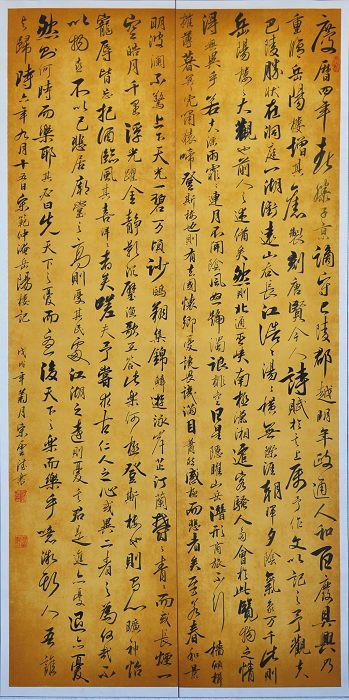 慶曆四年春滕子京謫守巴陵郡越明年政通人和百廢具興乃
重修岳陽樓增其舊製刻唐賢今人詩賦於其上屬予作文以記之予觀夫
巴陵勝狀在洞庭一湖銜遠山吞長江浩浩湯湯橫無際涯朝暉夕陰氣象萬千此則
岳陽樓大觀也前人之述備矣然則北通巫峽南極瀟湘遷客騷人多會於此覽物之情
得無異乎若夫淫雨霏霏連月不開陰風怒號濁浪排空日星隱曜山岳潛形商旅不行檣傾楫
摧薄暮冥冥虎嘯猿啼登斯樓也則有去國懷鄉憂讒畏譏滿目蕭然感極而悲者矣至若春和景
明波瀾不驚上下天光一碧萬頃沙鷗翔集錦鱗遊泳岸芷汀蘭郁郁青青而或長煙一
空皓月千里浮光躍金靜影沉璧漁歌互答此樂何極登斯樓也則有心曠神怡
寵辱皆忘把酒臨風其喜洋洋者矣嗟夫予嘗求古仁人之心或異二者之為何哉不
以物喜不以己悲居廟堂之高則憂其民處江湖之遠則憂其君是進亦憂退亦憂
然則何時而樂耶其必曰先天下之憂而憂後天下之樂而樂乎噫微斯人吾誰
與歸時六年九月十五日宋范仲淹岳陽樓記
戊戌年菊月宋雲書